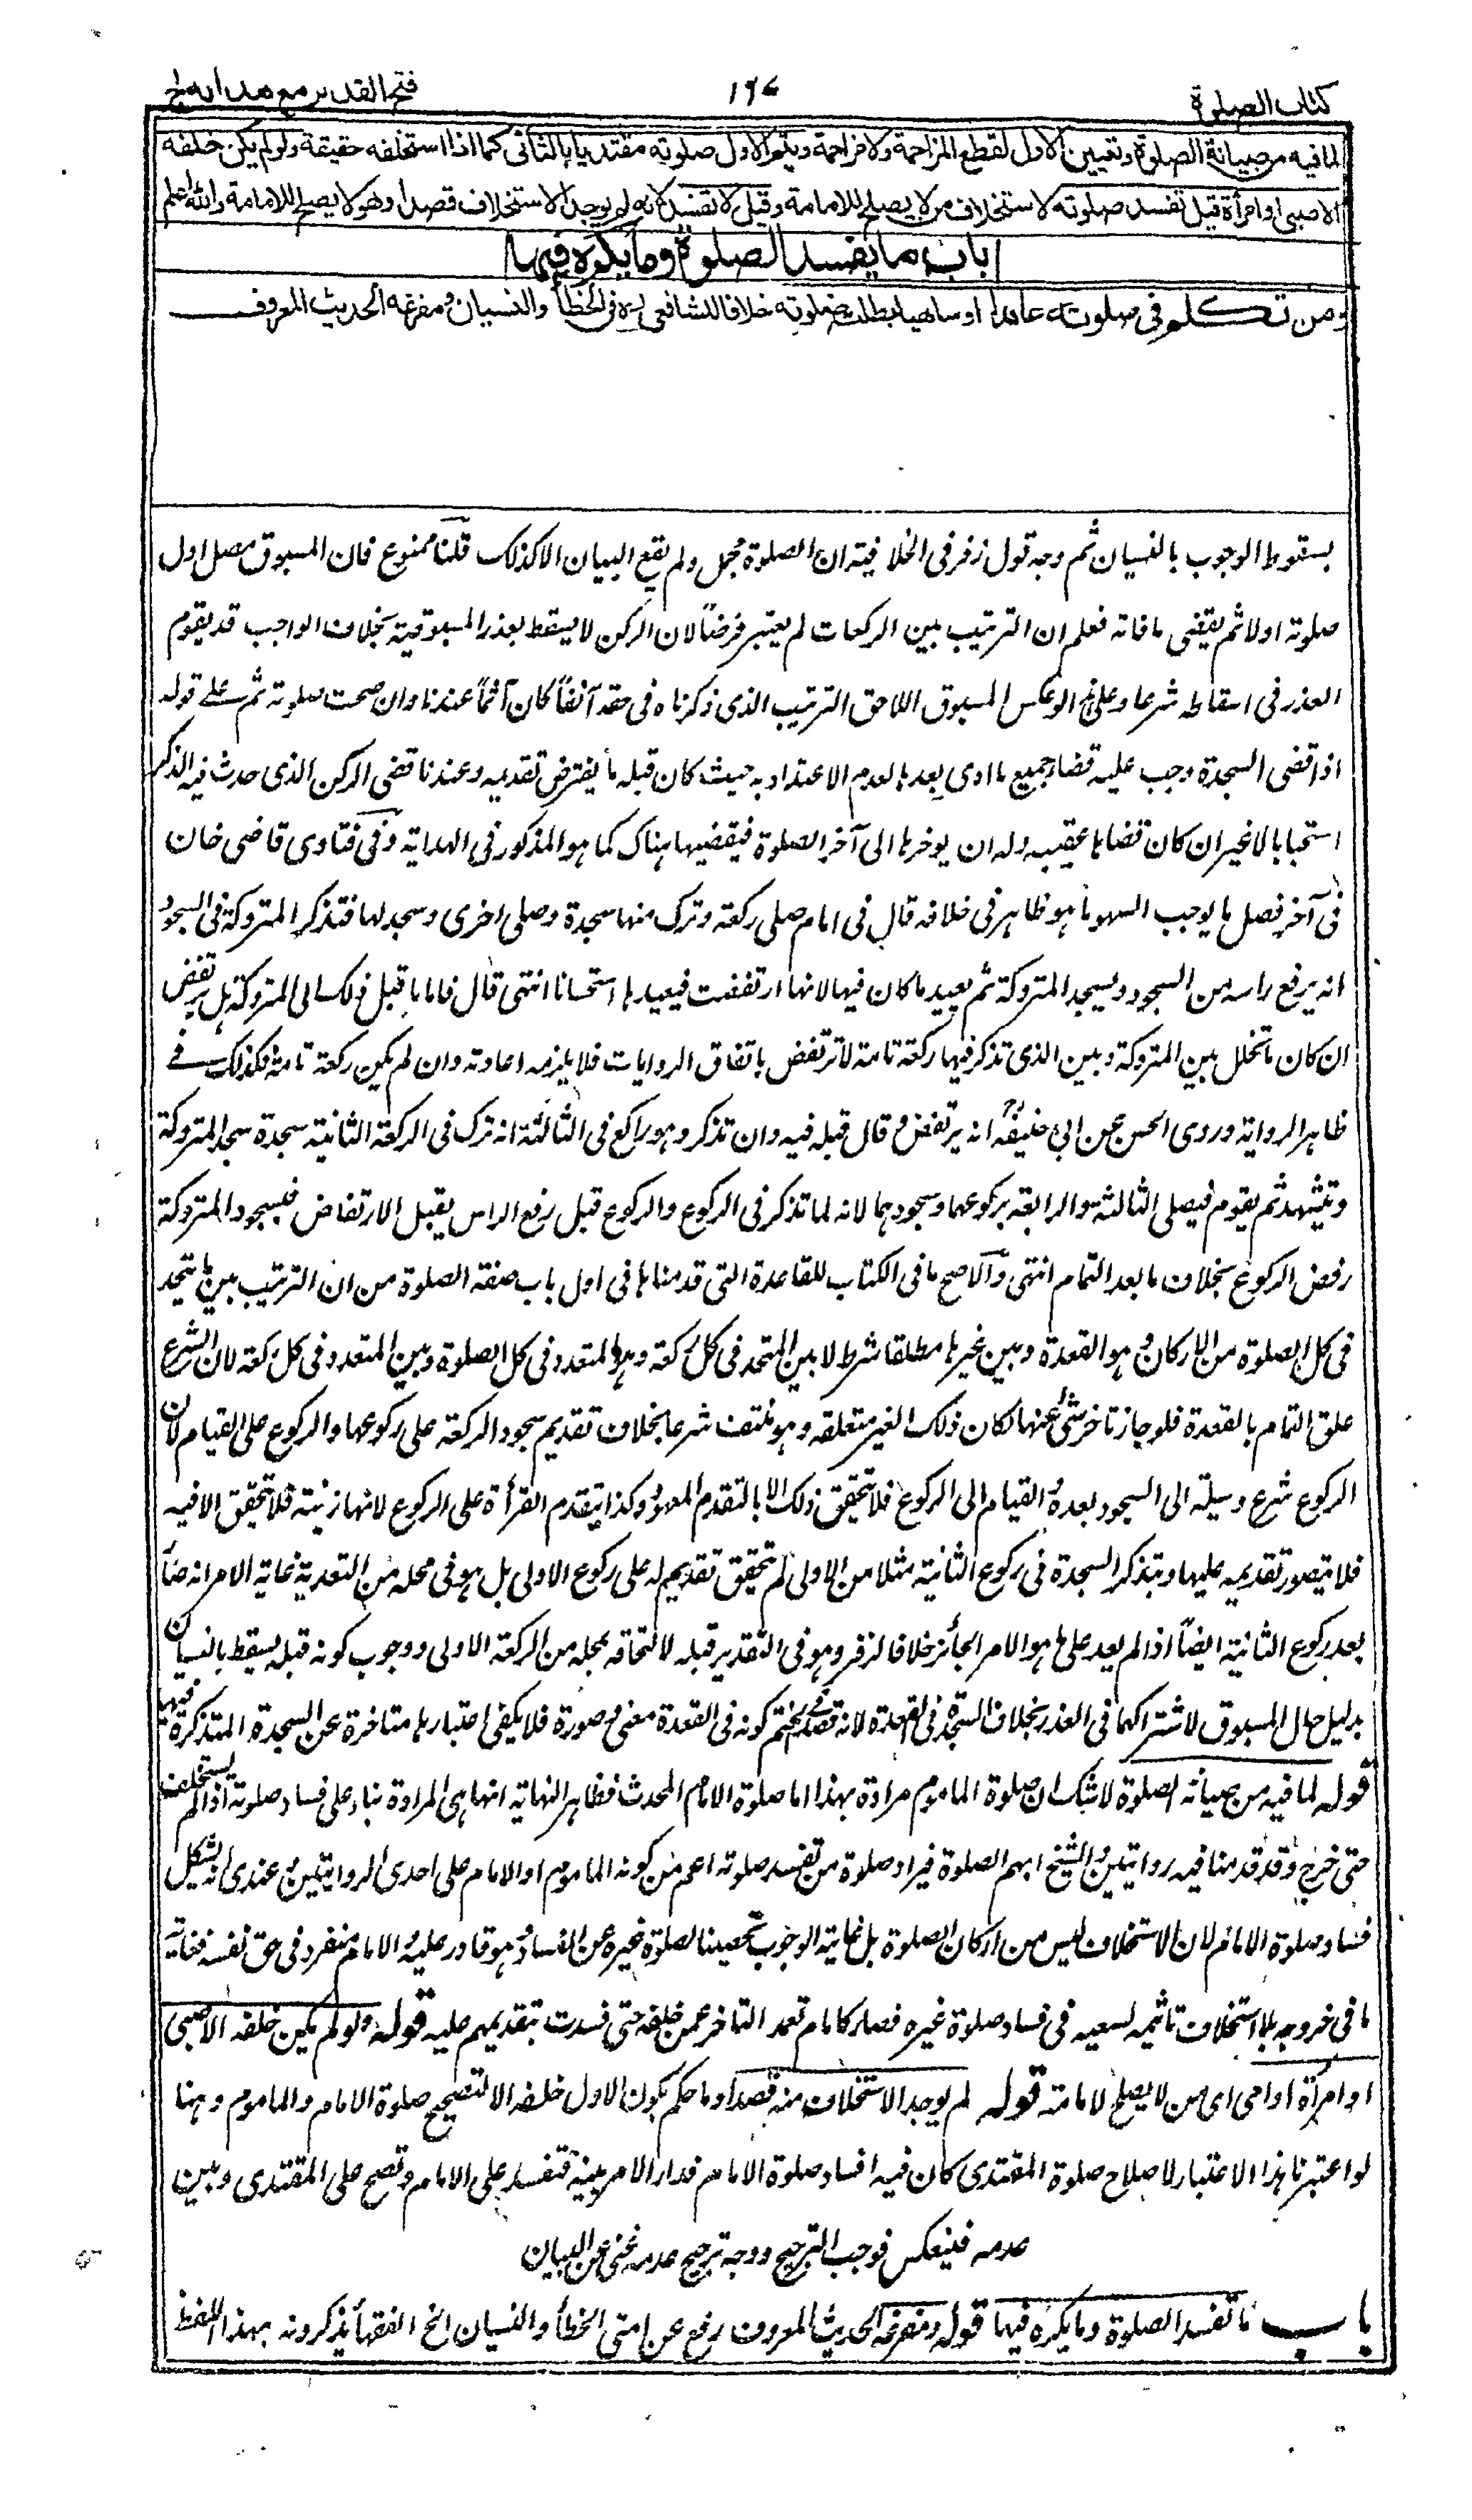 كتاب الصلوة
١٦٤
فتح القدير مع هدايه ج
لما فيه من صيانة الصلوة وتعيين الاول لقطع المزاحمة ولا مزاحمة ويتم الاول صلوته مقتديا بالثانى كما اذا استخلفه حقيقة ولو لم يكن خلفه
الا صبي او امرأة قيل تفسد صلوته لاستخلاف من لا يصلح للامامة وقيل لا تفسد لانه لم يوجد الاستخلاف قصدا وهو لا يصلح للامامة والله اعلم
باب ما يفسد الصلوة وما يكره فيها
ومن تكلم فى صلوته عامدا او ساهيا بطلت صلوته خلافا للشافعى رح فى الخطأ والنسيان ومفزعه الحديث المعروف
بسقوط الوجوب بالنسيان ثم وجه قول زفر فى الخلافية ان الصلوة مجمل ولم يقع البيان الا كذلك قلنا ممنوع فان المسبوق مصل اول
صلوته اولا ثم يقضى ما فاته فعلم ان الترتيب بين الركعات لم يعتبر فرضاً لان الركن لا يسقط بعذر المسبوقية بخلاف الواجب قد يقوم
العذر فى اسقاطه شرعا وعلى لو عكس المسبوق اللاحق الترتيب الذى ذكرناه فى حقه آنفاً كان آثماً عندنا وان صحت صلوته ثم على قوله
اذا قضى السجدة وجب عليه قضاء جميع ما ادى بعدها لعدم الاعتداد به حيث كان قبله ما يفترض تقديمه وعندنا قضى الركن الذى حدث فيه الذكر
استحبابا لا غير ان كان قضاها عقيبه وله ان يوخرها الى آخر الصلوة فيقضيها هناك كما هو المذكور فى الهداية وفى فتاوى قاضى خان
فى آخر فصل ما يوجب السهو ما هو ظاهر فى خلافه قال فى امام صلى ركعة وترك منها سجدة وصلى اخرى وسجد لها فتذكر المتروكة فى السجود
انه يرفع راسه من السجود ويسجد المتروكة ثم يعيد ما كان فيها لانها ارتفضت فيعيدها استحسانا انتهى قال فاما ما قبل ذلك الى المتروكة هل يرتفض
ان كان ما تخلل بين المتروكة وبين الذى تذكر فيها ركعة تامة لا ترتفض باتفاق الروايات فلا يلزمه اعادته وان لم يكن ركعة تامة فكذلك فى
ظاهر الرواية وروى الحسن عن ابى حنيفة رح انه يرتفض وقال قبله فيه وان تذكر وهو راكع فى الثالثة انه ترك فى الركعة الثانية سجدة سجد المتروكة
وتشهد ثم يقوم فيصلى الثالثة والرابعة بركوعهما وسجودهما لانه لما تذكر فى الركوع والركوع قبل رفع الراس يقبل الارتفاض فبسجود المتروكة
رفض الركوع بخلاف ما بعد التمام انتهى والاصح ما فى الكتاب للقاعدة التى قدمناها فى اول باب صفة الصلوة من ان الترتيب بين ما يتحد
فى كل الصلوة من الاركان وهو القعدة وبين غيرها مطلقا شرط لا بين المتحد فى كل ركعة وهو المتعدد فى كل الصلوة وبين المتعدد فى كل ركعة لان الشرع
علق التمام بالقعدة فلو جاز تاخر شئ عنها لكان ذلك الغير متعلقه وهو منتف شرعا بخلاف تقديم سجود الركعة على ركوعها والركوع على القيام لان
الركوع شرع وسيلة الى السجود بعده والقيام الى الركوع فلا تحقق ذلك الا بالتقدم المعهود وكذا يتقدم القرأة على الركوع لانها زينته فلا تحقق الا فيه
فلا يتصور تقديمه عليها وبتذكر السجدة فى ركوع الثانية مثلا من الاولى لم تحقق تقديمه على ركوع الاولى بل هو فى محله من التعدية غاية الامر انه صار
بعد ركوع الثانية ايضاً اذا لم يعد على ما هو الامر الجائز خلافا لزفر وهو فى التقدير قبله لالتحاقه بمحله من الركعة الاولى ووجوب كونه قبله يسقط بالنسيان
بدليل حال المسبوق لاشتراكهما فى العذر بخلاف السجدة فى القعدة لانه قصد ختم كونه فى القعدة معنى وصورة فلا يكفى اعتبارها متاخرة عن السجدة المتذكرة فيها
قوله لما فيه من صيانة الصلوة لا شك ان صلوة الماموم مرادة بهذا اما صلوة الامام المحدث فظاهر النهاية انها هى المرادة بناء على فساد صلوته اذا لم يستخلف
حتى خرج وقد قدمنا فيه روايتين والشيخ ابهم الصلوة فيراد صلوة من تفسد صلوته اعم من كونه الماموم او الامام على احدى الروايتين وعندى انه يشكل
فساد صلوة الامام لان الاستخلاف ليس من اركان الصلوة بل غايته الوجوب تحصينا لصلوة غيره عن الفساد وهو قادر عليه والامام منفرد فى حق نفسه فغاية
ما فى خروجه بلا استخلاف تاثيمه لسعيه فى فساد صلوة غيره فصار كامام تعمد التاخر عمن خلفه حتى فسدت بتقديمهم عليه قوله ولو لم يكن خلفه الا صبى
او امرأة او امى اى من لا يصلح لامامته قوله لم يوجد الاستخلاف منه قصدا وما حكم بكون الاول خلفه الا لتصحيح صلوة الامام والماموم وههنا
لو اعتبرنا هذا الاعتبار لاصلاح صلوة المقتدى كان فيه افساد صلوة الامام فدار الامر بينه فتفسد على الامام وتصح على المقتدى وبين
عدمه فينعكس فوجب الترجيح ووجه ترجيح عدمه غنى عن البيان
باب ما تفسد الصلوة وما يكره فيها قوله ومفزعه الحديث المعروف رفع عن امتى الخطأ والنسيان الخ الفقهاء يذكرونه بهذا اللفظ